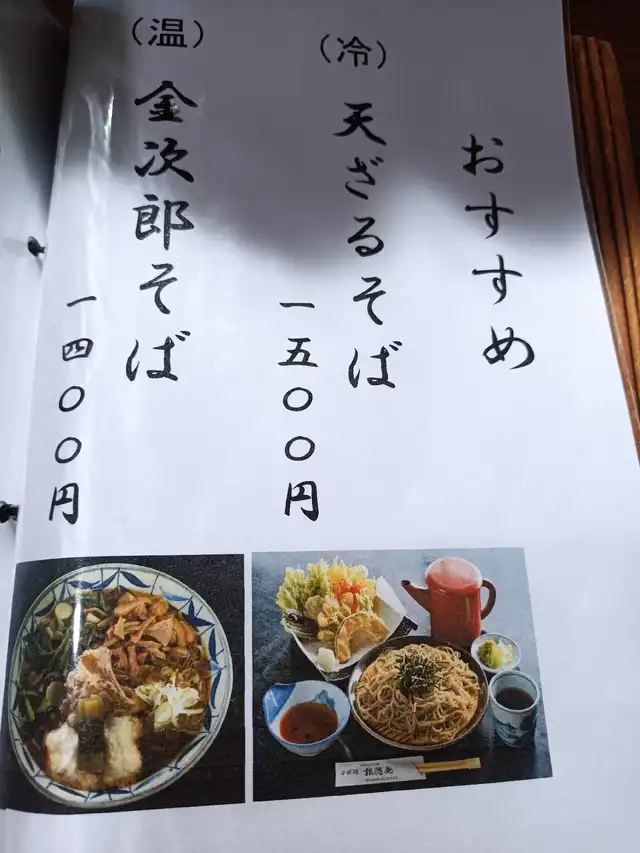 おすすめ
（冷）
天ざるそば
一五〇〇円
（温）
金次郎そば
一四〇〇円